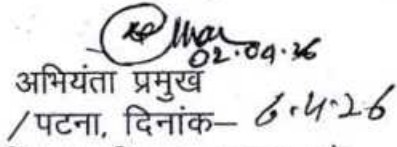 02.04.26
अभियंता प्रमुख
/पटना, दिनांक– 6.4.26